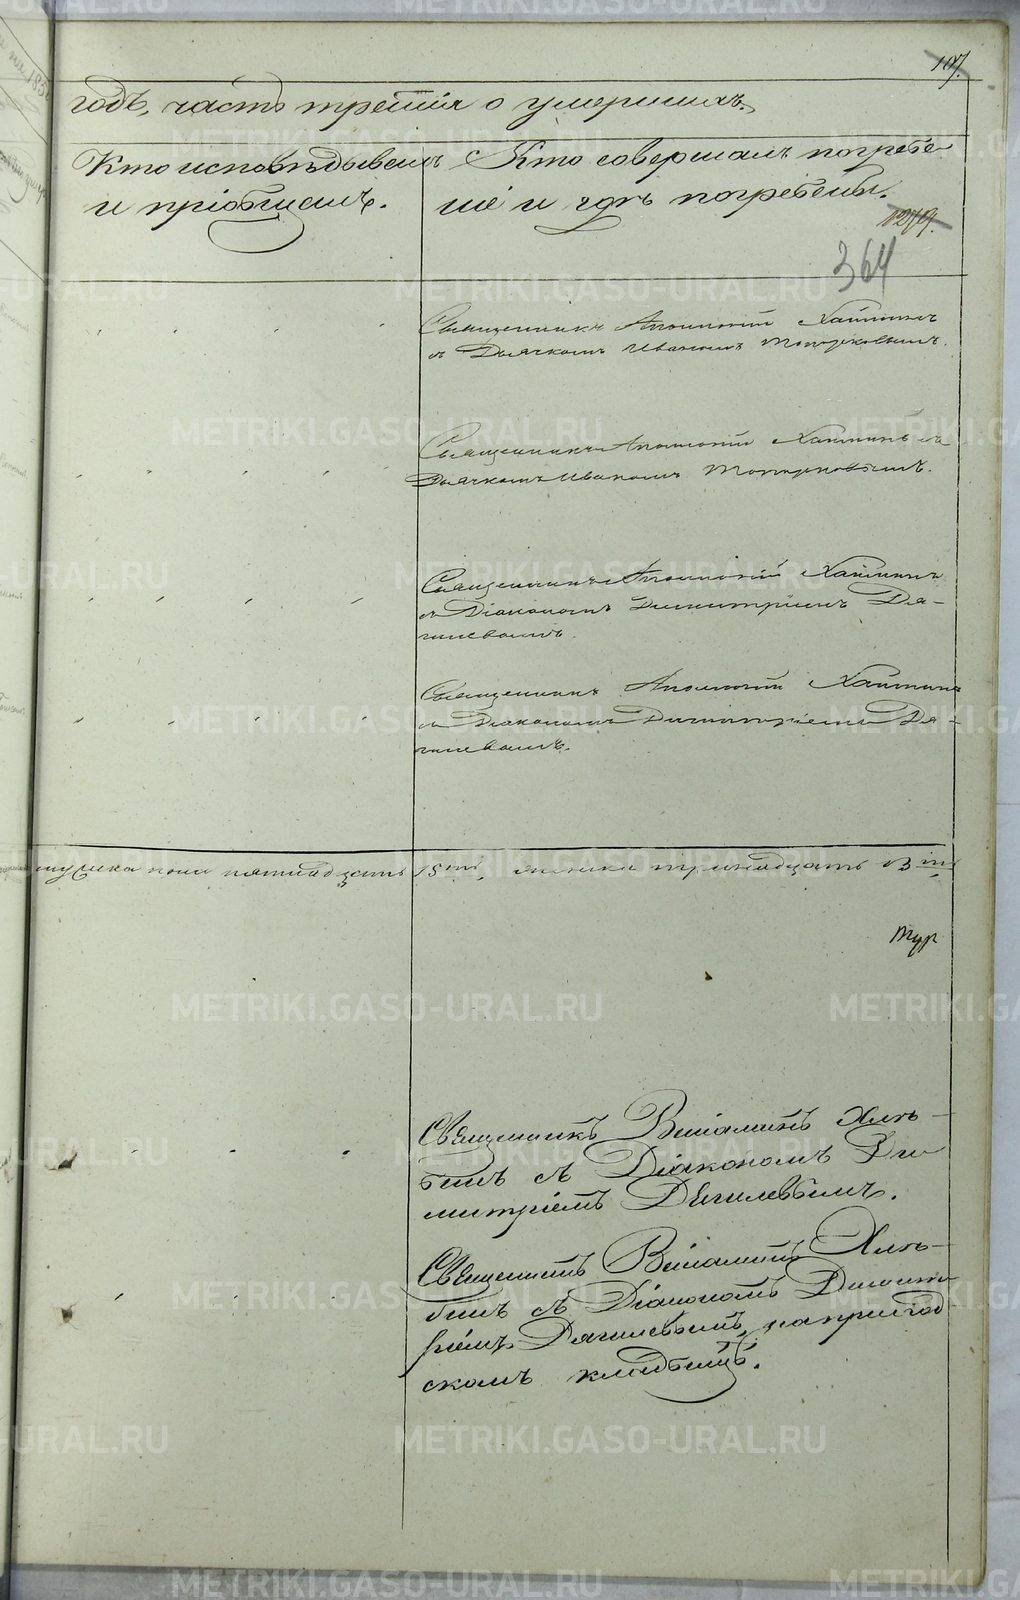 107.
годъ, часть третiя о умершихъ.
Кто исповѣдывалъ
и прiобщалъ.
Кто совершалъ погребе-
нiе и гдѣ погребены.
279.
364
Священникъ Аполлонiй Хайминъ
съ Дьячкомъ Иваномъ Топорковымъ.
Священникъ Аполлонiй Хайминъ съ
Дьячкомъ Иваномъ Топорковымъ.
Священникъ Аполлонiй Хайминъ
съ Дiакономъ Димитрiемъ Дя-
гилевымъ.
Священникъ Аполлонiй Хайминъ
съ Дiакономъ Димитрiемъ Дя-
гилевымъ.
мужска пола пятнадцать 15ть, женска тринадцать 13ть
Священникъ Венiаминъ Хлѣ-
бинъ съ Дiакономъ Ди-
митрiемъ Дягилевымъ.
Священникъ Венiаминъ Хлѣ-
бинъ съ Дiакономъ Димит-
рiемъ Дягилевымъ, на приход-
скомъ кладбищѣ.
METRIKI.GASO-URAL.RU